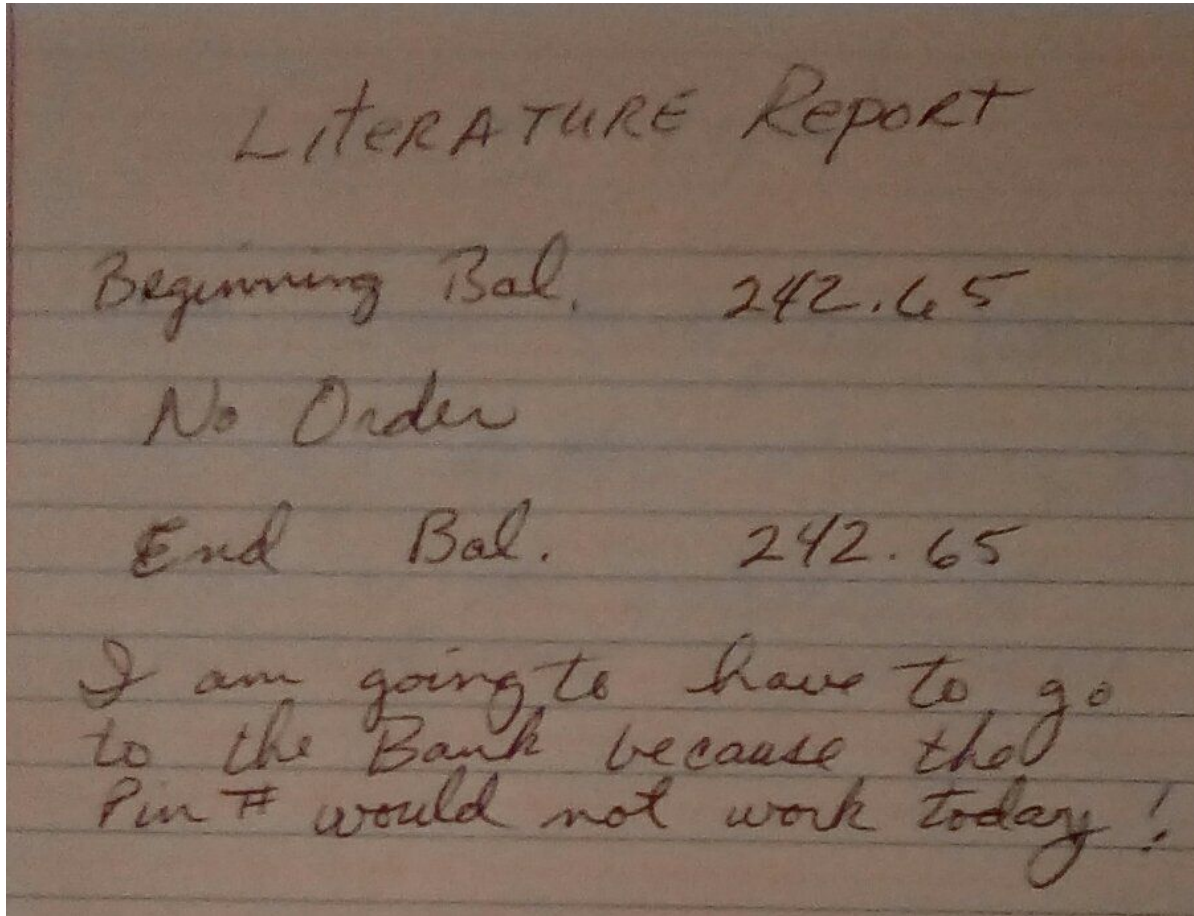 Literature Report
Beginning Bal. 242.65
No Order
End Bal. 242.65
I am going to have to go
to the Bank because the
Pin # would not work today!